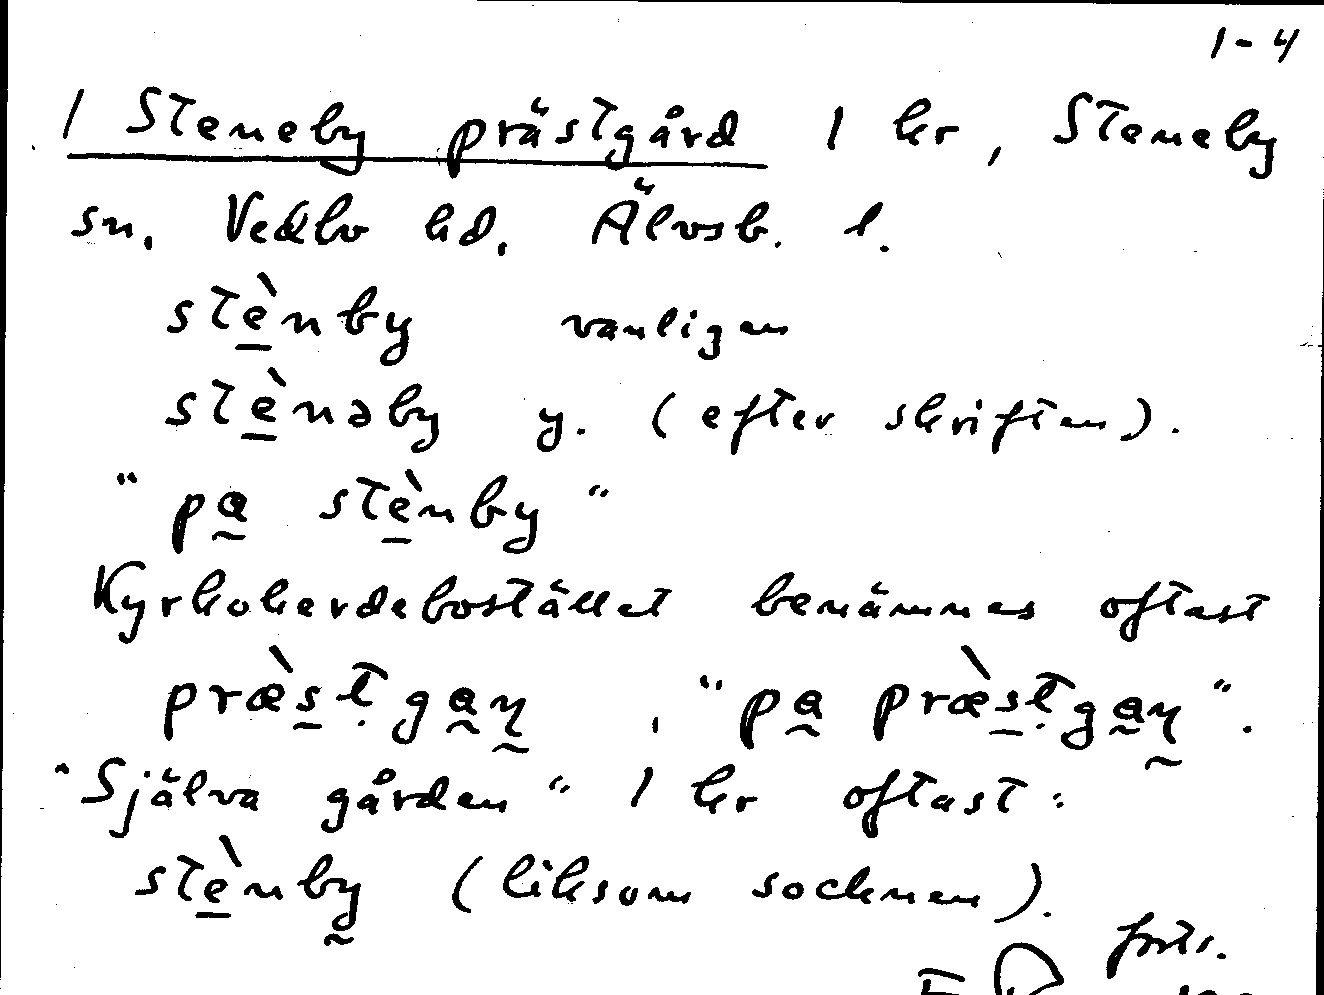 1-4
1 Steneby prästgård 1 kr, Steneby
sn. Vedbo hd. Älvsb. l.
stènby vanligen
stènəby y. (efter skriften).
"pa stènby"
Kyrkoherdebostället benämnes oftast
præ̀stgaɳ , "pa præ̀stgaɳ".
"Själva gården" 1 kr oftast:
stènby (liksom socknen).
forts.